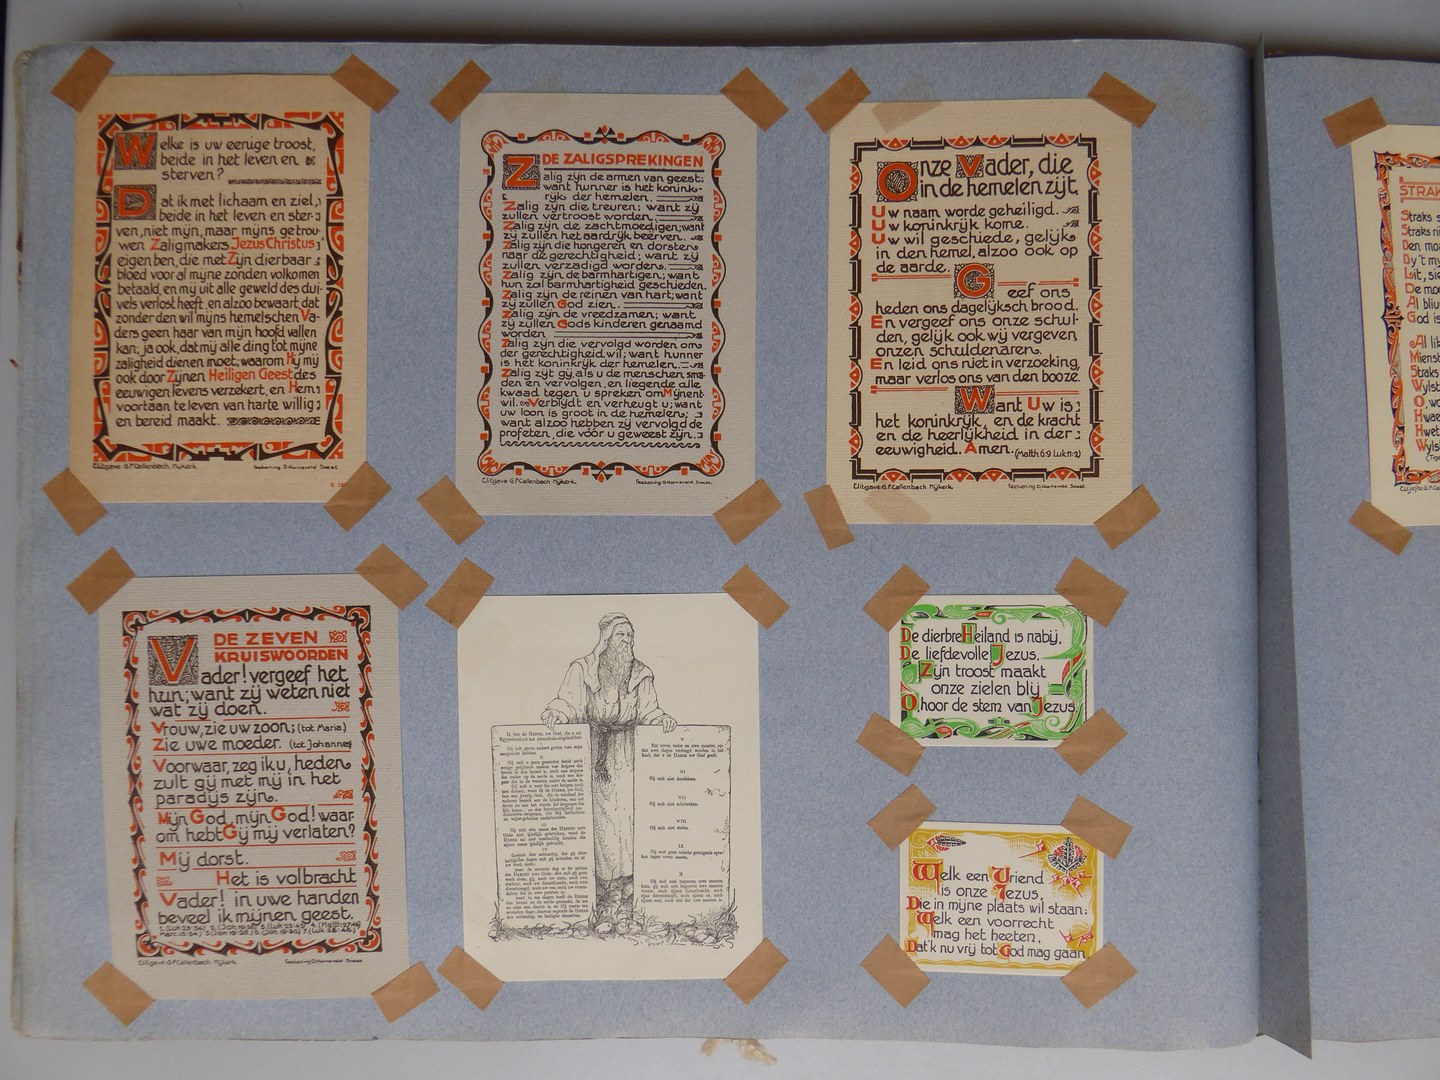 Welke is uw eenige troost,
beide in het leven en
sterven?
Dat ik met lichaam en ziel,
beide in het leven en ster-
ven, niet mijn, maar mijns getrou-
wen Zaligmakers Jezus Christus
eigen ben, die met Zijn dierbaar
bloed voor al mijne zonden volkomen
betaald, en mij uit alle geweld des dui-
vels verlost heeft, en alzoo bewaart, dat
zonder den wil mijns hemelschen Va-
ders geen haar van mijn hoofd vallen
kan; ja ook, dat mij alle ding tot mijne
zaligheid dienen moet; waarom Hij mij
ook door Zijnen Heiligen Geest des
eeuwigen levens verzekert, en Hem
voortaan te leven van harte willig
en bereid maakt.
Uitgave: G.F. Callenbach Nijkerk.
Teekening D. Hornsveld Soest.
DE ZALIGSPREKINGEN
Zalig zijn de armen van geest;
want hunner is het konink-
rijk der hemelen.
Zalig zijn die treuren; want zij
zullen vertroost worden.
Zalig zijn de zachtmoedigen; want
zij zullen het aardrijk beërven.
Zalig zijn die hongeren en dorsten
naar de gerechtigheid; want zij
zullen verzadigd worden.
Zalig zijn de barmhartigen; want
hun zal barmhartigheid geschieden.
Zalig zijn de reinen van hart; want
zij zullen God zien.
Zalig zijn de vreedzamen; want
zij zullen Gods kinderen genaamd
worden.
Zalig zijn die vervolgd worden om
der gerechtigheid wil; want hunner
is het koninkrijk der hemelen.
Zalig zijt gij, als u de menschen sma-
den en vervolgen, en liegende alle
kwaad tegen u spreken om Mijnent
wil. Verblijdt en verheugt u; want
uw loon is groot in de hemelen;
want alzoo hebben zij vervolgd de
profeten, die vóór u geweest zijn.
Uitgave: G.F. Callenbach Nijkerk.
Teekening: D. Hornsveld Soest.
Onze Vader, die
in de hemelen zijt.
Uw naam worde geheiligd.
Uw koninkrijk kome.
Uw wil geschiede, gelijk
in den hemel, alzoo ook op
de aarde.
Geef ons
heden ons dagelijksch brood.
En vergeef ons onze schul-
den, gelijk ook wij vergeven
onzen schuldenaren.
En leid ons niet in verzoeking,
maar verlos ons van den booze.
Want Uw is
het koninkrijk, en de kracht
en de heerlijkheid in der
eeuwigheid. Amen. (Matth 6:9 Luk 11:2)
Uitgave: G.F. Callenbach Nijkerk.
Teekening D. Hornsveld Soest
STRAK
Straks s
Straks rii
Den mo
Dy 't my
Lit, sie
De moe
Al bliu
God is
Al lik
Mienst
Straks
Wylst
O, wo
Hwae
Hwet
Wylst
DE ZEVEN
KRUISWOORDEN
Vader! vergeef het
hun; want zij weten niet
wat zij doen.
Vrouw, zie uw zoon; (tot Maria)
Zie uwe moeder. (tot Johannes)
Voorwaar, zeg ik u, heden
zult gij met mij in het
paradijs zijn.
Mijn God, mijn God! waar-
om hebt Gij mij verlaten?
Mij dorst.
Het is volbracht
Vader! in uwe handen
beveel ik mijnen geest.
Uitgave: G.F. Callenbach Nijkerk.
Teekening D. Hornsveld Soest
Gij zult niet doodslaan.
VII
Gij zult niet echtbreken.
VIII
Gij zult niet stelen.
IX
X
De dierbre Heiland is nabij,
De liefdevolle Jezus.
Zijn troost maakt
onze zielen blij
O, hoor de stem van Jezus.
Welk een Vriend
is onze Jezus,
Die in mijne plaats wil staan:
Welk een voorrecht
mag het heeten,
Dat 'k nu vrij tot God mag gaan.